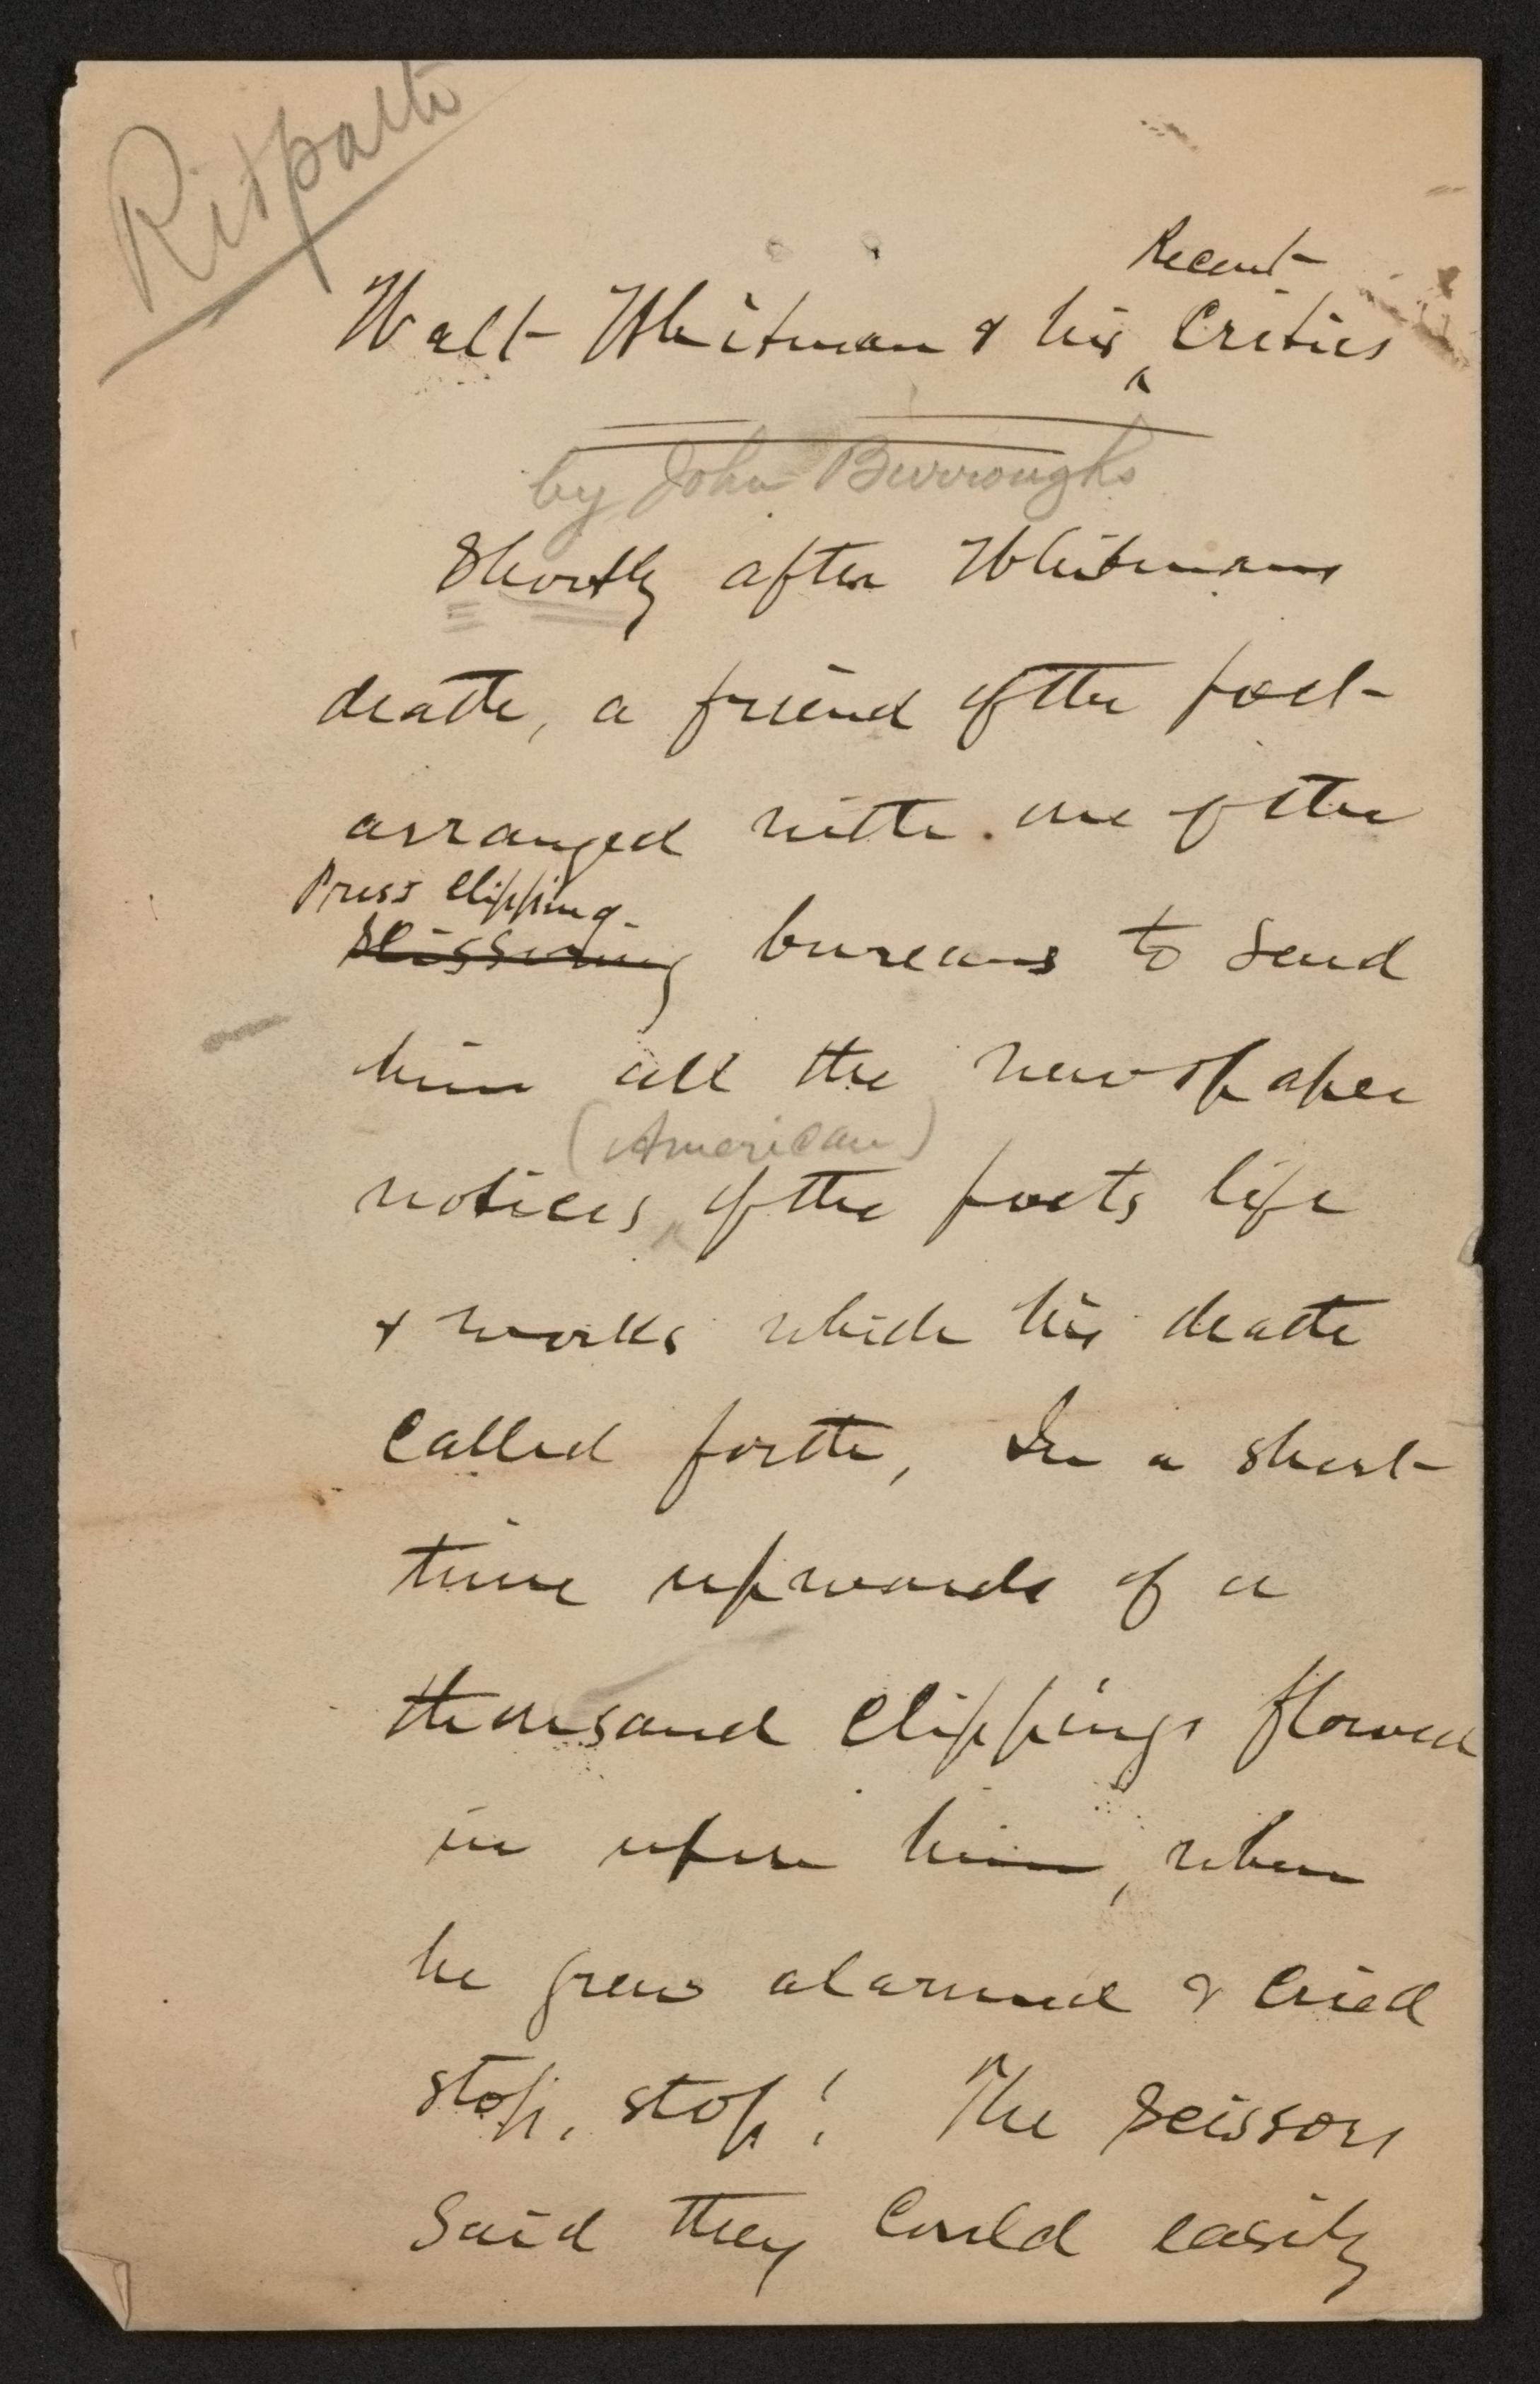 Recent
Walt Whitman & his ^ Critics
by John Burroughs
Shortly after Whitmans
death, a friend of the poet
arranged with one of the
Press Clipping
Scissoring bureaus to send
him all the newspaper
(American)
notices ^ of the poets life
& works which his death
called forth, In a short
time upwards of a
thousand clippings flowed
in upon him, when
he grew alarmed & cried
stop, stop! The Scissors
Said they could easily